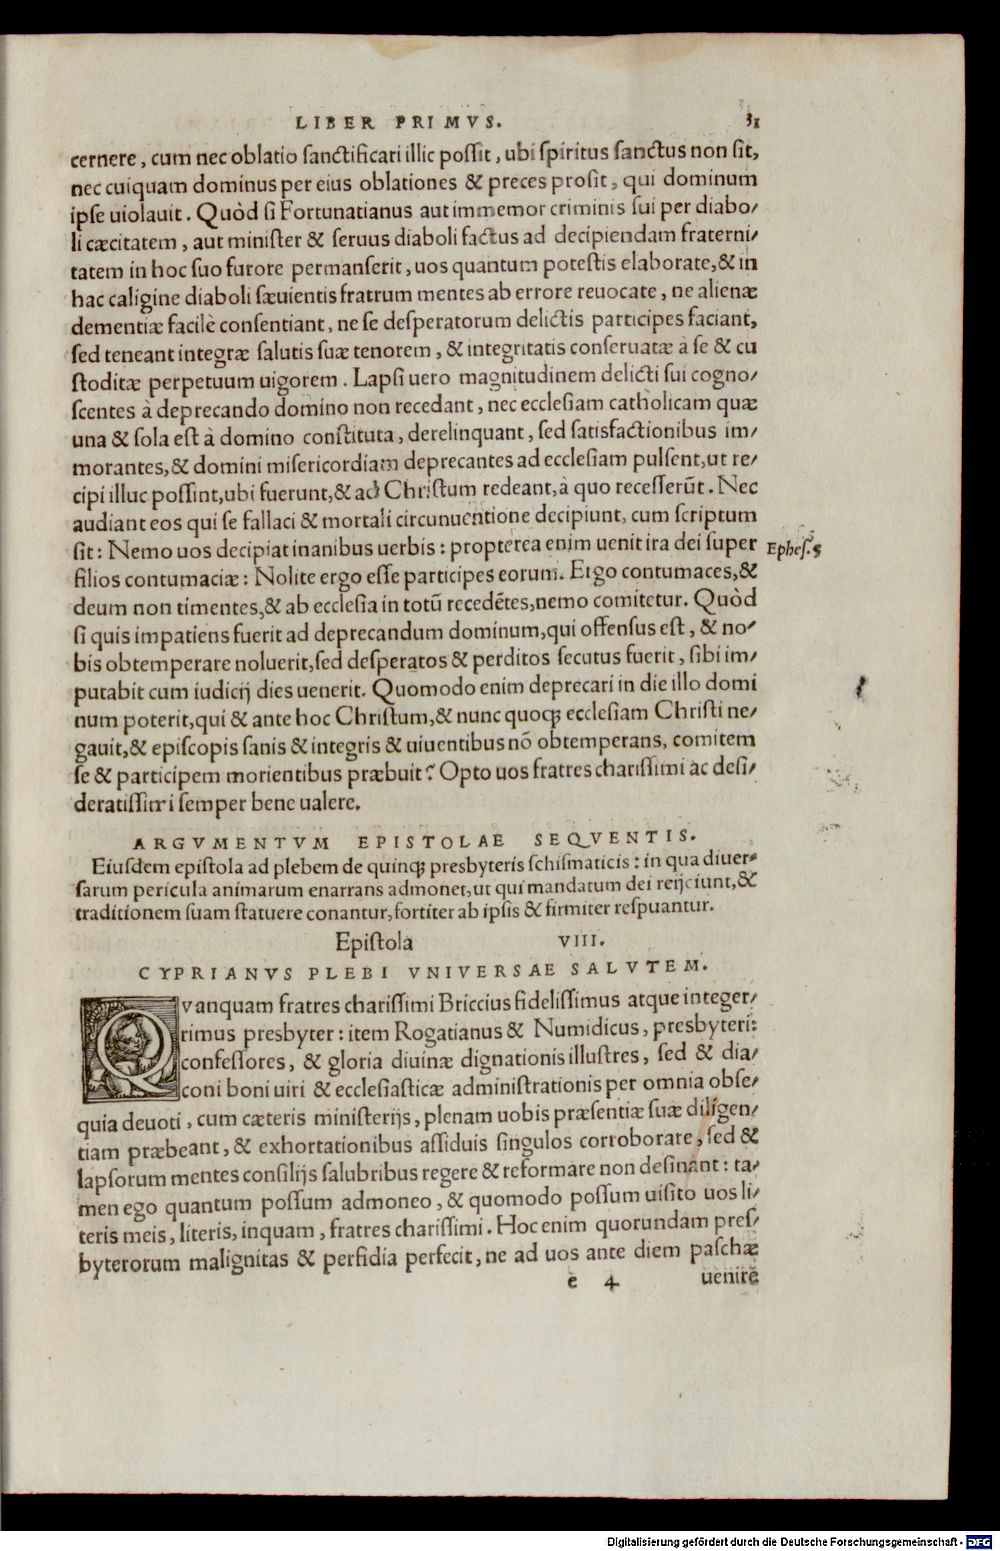 LIBER PRIMVS. 31
cernere, cum nec oblatio sanctificari illic possit, ubi spiritus sanctus non sit,
nec cuiquam dominus per eius oblationes & preces prosit, qui dominum
ipse uiolauit. Quòd si Fortunatianus aut immemor criminis sui per diabo/
li cæcitatem, aut minister & seruus diaboli factus ad decipiendam fraterni/
tatem in hoc suo furore permanserit, uos quantum potestis elaborate, & in
hac caligine diaboli sæuientis fratrum mentes ab errore reuocate, ne alienæ
dementiæ facilè consentiant, ne se desperatorum delictis participes faciant,
sed teneant integræ salutis suæ tenorem, & integritatis conseruatæ à se & cu
stoditæ perpetuum uigorem. Lapsi uero magnitudinem delicti sui cogno/
scentes à deprecando domino non recedant, nec ecclesiam catholicam quæ
una & sola est à domino constituta, derelinquant, sed satisfactionibus im/
morantes, & domini misericordiam deprecantes ad ecclesiam pulsent, ut re/
cipi illuc possint, ubi fuerunt, & ad Christum redeant, à quo recesserūt. Nec
audiant eos qui se fallaci & mortali circunuentione decipiunt, cum scriptum
sit: Nemo uos decipiat inanibus uerbis: propterea enim uenit ira dei super Ephes. 5
filios contumaciæ: Nolite ergo esse participes eorum. Ergo contumaces, &
deum non timentes, & ab ecclesia in totū recedētes, nemo comitetur. Quòd
si quis impatiens fuerit ad deprecandum dominum, qui offensus est, & no/
bis obtemperare noluerit, sed desperatos & perditos secutus fuerit, sibi im/
putabit cum iudicij dies uenerit. Quomodo enim deprecari in die illo domi
num poterit, qui & ante hoc Christum, & nunc quoq; ecclesiam Christi ne/
gauit, & episcopis sanis & integris & uiuentibus nō obtemperans, comitem
se & participem morientibus præbuit? Opto uos fratres charissimi ac desi/
deratissimi semper bene ualere.
ARGVMENTVM EPISTOLAE SEQVENTIS.
Eiusdem epistola ad plebem de quinq; presbyteris schismaticis: in qua diuer/
sarum pericula animarum enarrans admonet, ut qui mandatum dei reijciunt, &
traditionem suam statuere conantur, fortiter ab ipsis & firmiter respuantur.
Epistola VIII.
CYPRIANVS PLEBI VNIVERSAE SALVTEM.
Qvanquam fratres charissimi Briccius fidelissimus atque integer/
rimus presbyter: item Rogatianus & Numidicus, presbyteri:
confessores, & gloria diuinæ dignationis illustres, sed & dia/
coni boni uiri & ecclesiasticæ administrationis per omnia obse/
quia deuoti, cum cæteris ministerijs, plenam uobis præsentiæ suæ diligen/
tiam præbeant, & exhortationibus assiduis singulos corroborate, sed &
lapsorum mentes consilijs salubribus regere & reformare non desinant: ta/
men ego quantum possum admoneo, & quomodo possum uisito uos li/
teris meis, literis, inquam, fratres charissimi. Hoc enim quorundam pres/
byterorum malignitas & perfidia perfecit, ne ad uos ante diem paschæ
e 4 uenire
Digitalisierung gefördert durch die Deutsche Forschungsgemeinschaft - DFG